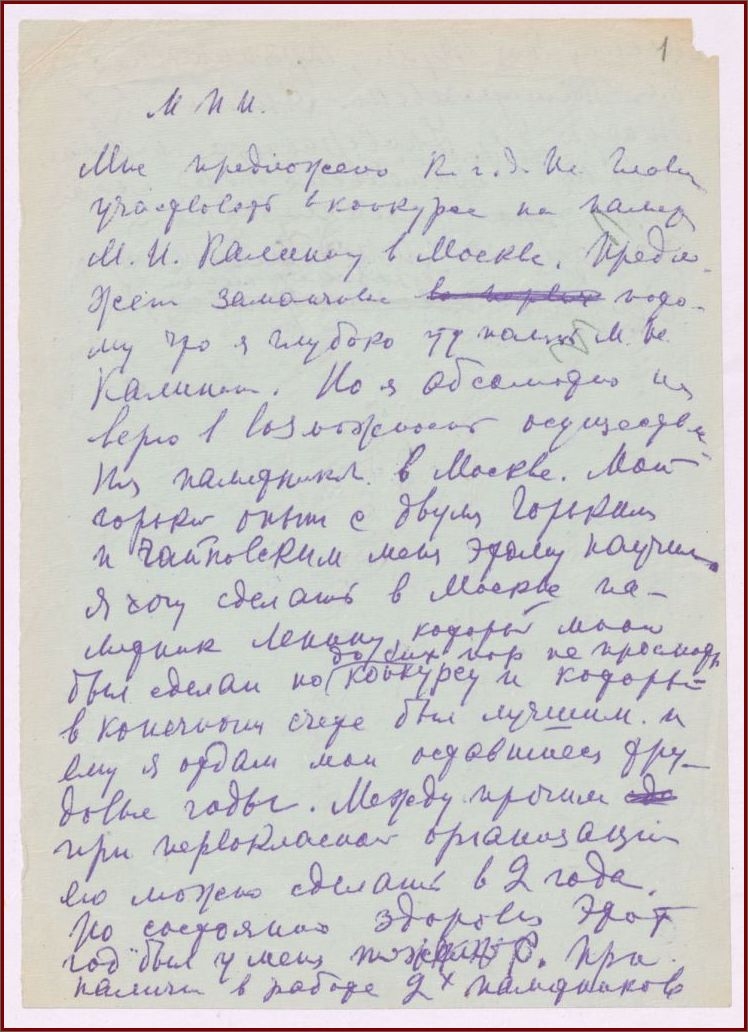 1
М Н И.
Мне предложено К. г. д. И.
участвовать в конкурсе на памят
М. И. Калинину в Москве. Предло-
жен заманчиво потo-
му что я глубоко М. И.
Калинина. Но я абсолютно не
верю в возможность осуществле-
ния памятника в Москве. Мой
горький опыт с двумя Горькими
и Чайковским меня этому научил.
Я хочу сделать в Москве па-
мятник Ленину который мною
до сих пор не
был сделан по конкурсу и который
в конечном счете был лучшим. и
ему я отдам мои оставшиеся тру-
довые годы. Между прочим
при первоклассной организации
его можно сделать в 2 года.
По состоянию здоровья этот
год был у меня При
наличии в работе 2х памятников